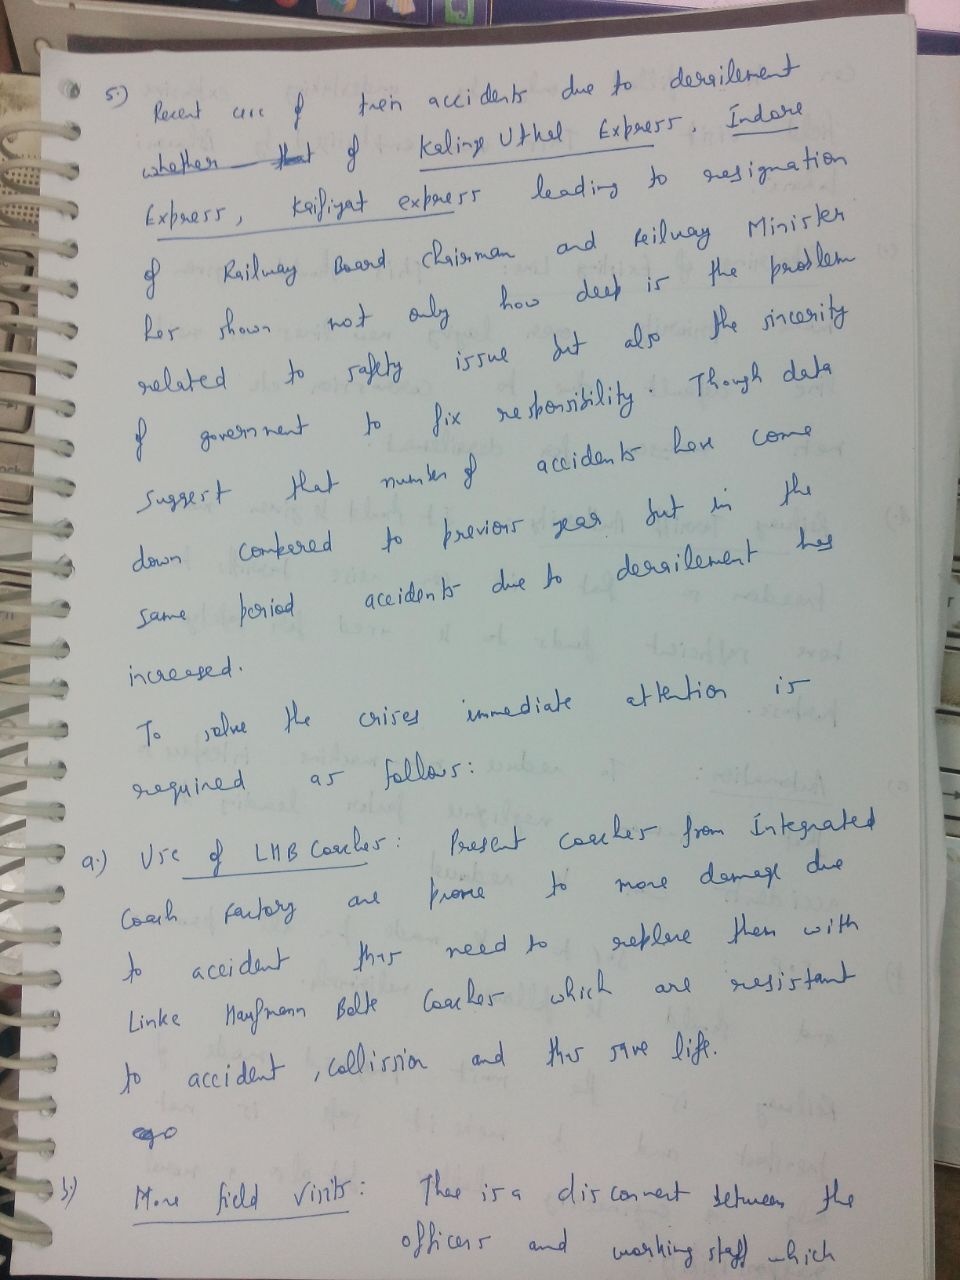 5.) Recent case of train accidents due to derailement
whether that of Kalinga Uthal Express, Indore
Express, Kaifiyat express leading to resignation
of Railway Board Chairman and Railway Minister
has shown not only how deep is the problem
related to safety issue but also the sincerity
of government to fix responsibility. Though data
suggest that number of accidents have come
down compared to previous year but in the
same period accidents due to derailement has
increased.
To solve the crises immediate attention is
required as follows:
a.) Use of LHB Coaches: Present coaches from Integrated
Coach Factory are prone to more damage due
to accident thus need to replace them with
Linke Haufmann Bolte Coaches which are resistant
to accident, collission and thus save life.
b.) More field visits: There is a disconnect between the
officers and working staff which